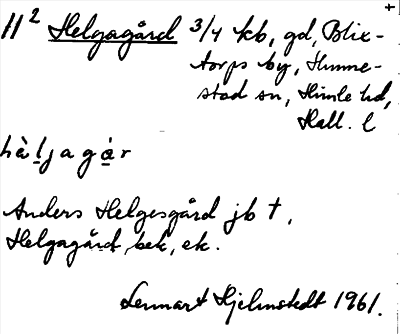 11² Helgagård 3/4 kb, gd, Blix-
torps by, Himme-
stad sn, Himle hd,
Hall. l
hà̀ljagár
Anders Helgesgård jb †,
Helgagård, bek, ek.
Lennart Hjelmstedt 1961.